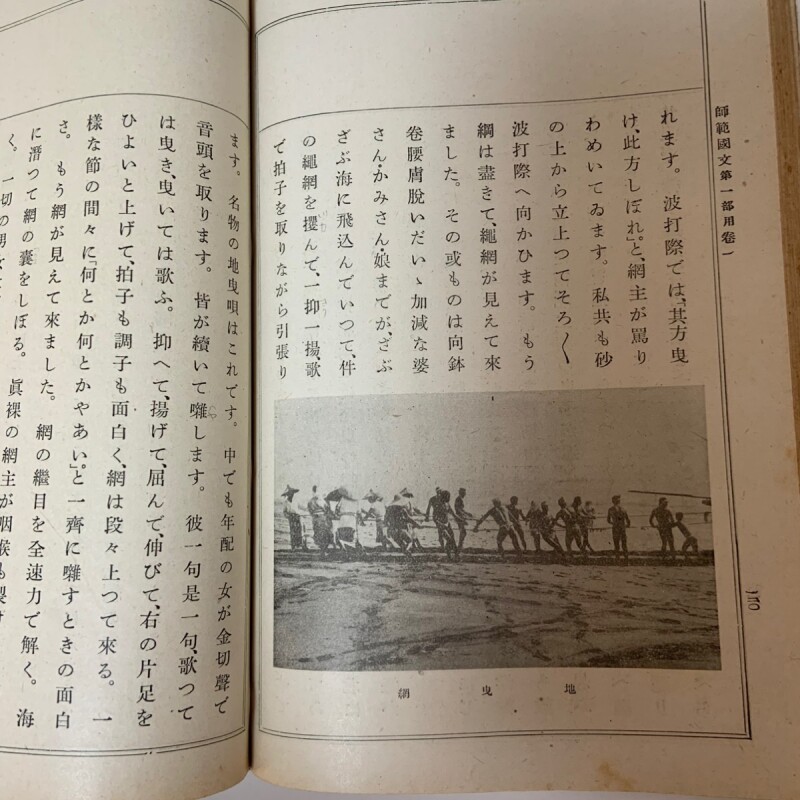 師範國文第一部用卷一
れます。波打際では、「其方曳
け、此方しぼれ」と、網主が罵り
わめいてゐます。私共も砂
の上から立上つてそろ〳〵
波打際へ向かひます。もう
綱は盡きて、繩網が見えて來
ました。その或ものは向鉢
卷腰膚脫いだいゝ加減な婆
さん・かみさん・娘までが、ざぶ
ざぶ海に飛込んでいつて、件
の繩網を攫んで、一抑一揚歌
で拍子を取りながら引張り
地曳網
ます。名物の地曳唄はこれです。中でも年配の女が金切聲で
音頭を取ります。皆が續いて囃します。彼一句是一句、歌つて
は曳き、曳いては歌ふ。抑へて、揚げて、屈んで、伸びて、右の片足を
ひよいと上げて、拍子も調子も面白く、網は段々上つて來る。一
樣な節の間々に「何とか何とかやあい」と一齊に囃すときの面白
さ。もう網が見えて來ました。網の繼目を全速力で解く。海
に潛つて網の囊をしぼる。眞裸の網主が咽喉も裂け
く。一切の男